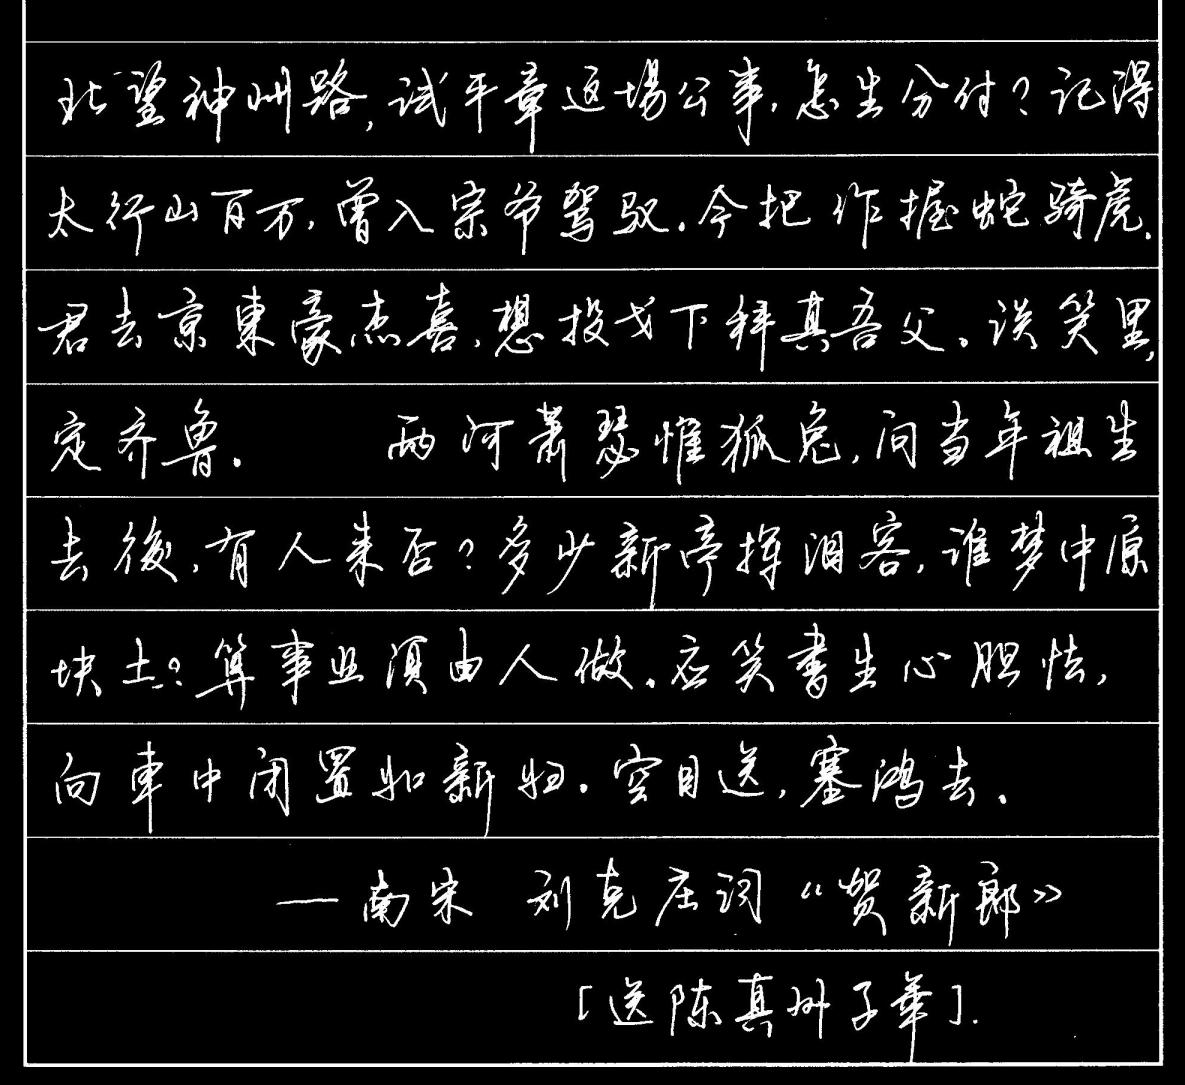 北望神州路，试平章这場公事，怎生分付？记得
太行山百万，曾入宗爷驾驭。今把作握蛇骑虎，
君去京東豪杰喜，想投戈下拜真吾父。谈笑里，
定齐鲁。 两河萧瑟惟狐兔，问当年祖生
去後，有人来否？多少新亭挥泪客，谁梦中原
块土？算事业须由人做。应笑書生心胆怯，
向車中闭置如新妇。空目送，塞鸿去。
—南宋 刘克庄词《贺新郎》
[送陈真州子華].